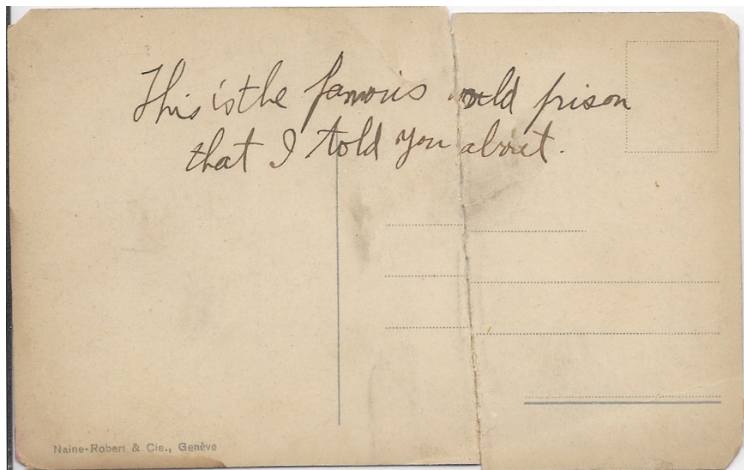 This is the famous old prison
that I told you about.
Naine-Robert & Cie., Genève